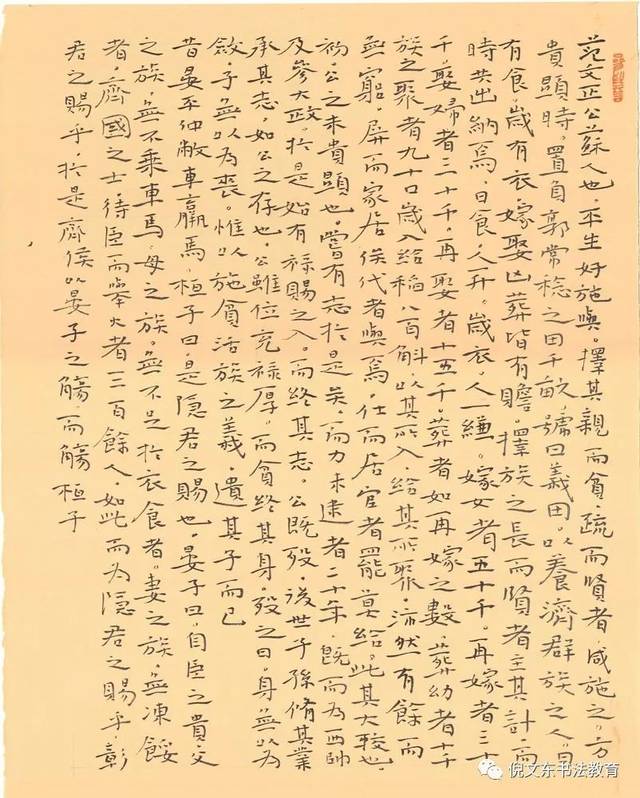 范文正公蘇人也平生好施與擇其親而貧疏而賢者咸施之方
貴顯時置負郭常稔之田千畝號曰義田以養濟群族之人日
有食歲有衣嫁娶凶葬皆有贍擇族之長而賢者主其計而
時共出納焉日食人一升歲衣人一縑嫁女者五十千再嫁者三十
千娶婦者三十千再娶者十五千葬者如再嫁之數葬幼者十千
族之聚者九十口歲入給稻八百斛以其所入給其所聚沛然有餘而
無窮屏而家居俟代者與焉仕而居官者罷莫給此其大較也
初公之未貴顯也嘗有志於是矣而力未逮者二十年既而為西帥
及參大政於是始有祿賜之入而終其志公既歿後世子孫脩其業
承其志如公之存也公雖位充祿厚而貧終其身歿之日身無以為
斂子無以為喪惟以施貧活族之義遺其子而已
昔晏平仲敝車羸馬桓子曰是隱君之賜也晏子曰自臣之貴父
之族無不乘車馬母之族無不足於衣食者妻之族無凍餒
者齊國之士待臣而舉火者三百餘人如此而為隱君之賜乎彰
君之賜乎於是齊侯以晏子之觴而觴桓子
倪文东书法教育